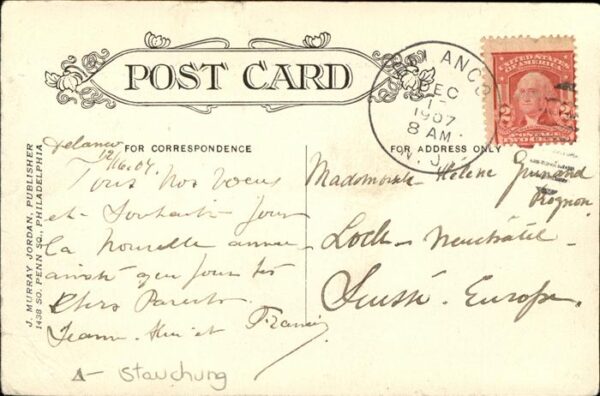 POST CARD
ANCO
DEC
17
1907
8 AM
N. J.
UNITED STATES
OF AMERICA
2
2
POSTAGE
FOR CORRESPONDENCE
FOR ADDRESS ONLY
J. MURRAY JORDAN, PUBLISHER
1438 SO. PENN SQ., PHILADELPHIA
Delanco
Tous Nos voeux
et Souhaits pour
la Nouvelle année
ainsi que pour tes
Chers Parents.
Jeanne et Francis
Mademoiselle Hélène
Locle - Neuchâtel -
Suisse. Europe.
A- Stauchung